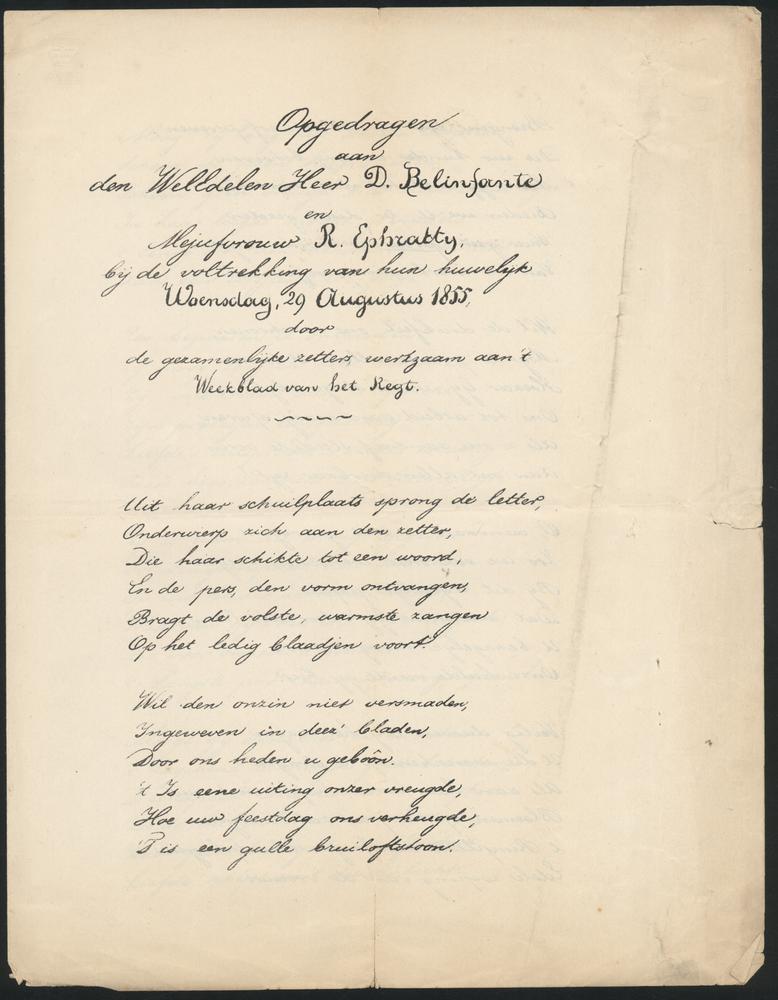 Opgedragen
aan
den Weledelen Heer D. Belinfante
en
Mejufvrouw R. Ephratty,
bij de voltrekking van hun huwelijk
Woensdag, 29 Augustus 1855,
door
de gezamenlijke zetters, werkzaam aan 't
Weekblad van het Regt.
Uit haar schuilplaats sprong de letter,
Onderwierp zich aan den zetter,
Die haar schikte tot een woord,
En de pers, den vorm ontvangen,
Bragt de volste, warmste zangen
Op het ledig blaadjen voort.
Wil den onzin niet versmaden,
Ingeweven in deez' bladen,
Door ons heden u geboôn.
't Is eene uiting onzer vreugde,
Hoe uw feestdag ons verheugde,
'T is een gulle bruiloftstoon.